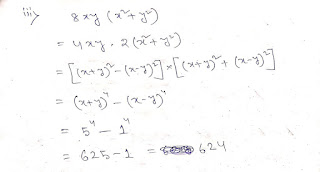 iii) 8xy (x²+y²)
= 4xy · 2(x²+y²)
= [(x+y)² - (x-y)²] × [(x+y)² + (x-y)²]
= (x+y)⁴ - (x-y)⁴
= 5⁴ - 1⁴
= 625 - 1 = 624